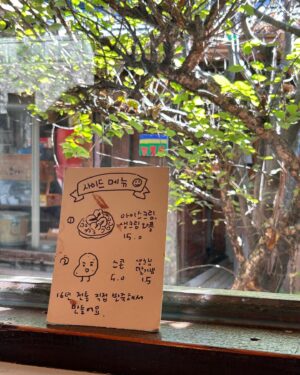 사이드 메뉴
① 아이스크림
생크림 와플
15.0
② 스콘 생크림
5.0 딸기잼 1.5
16년 전통 직접 반죽해서
만들어요.